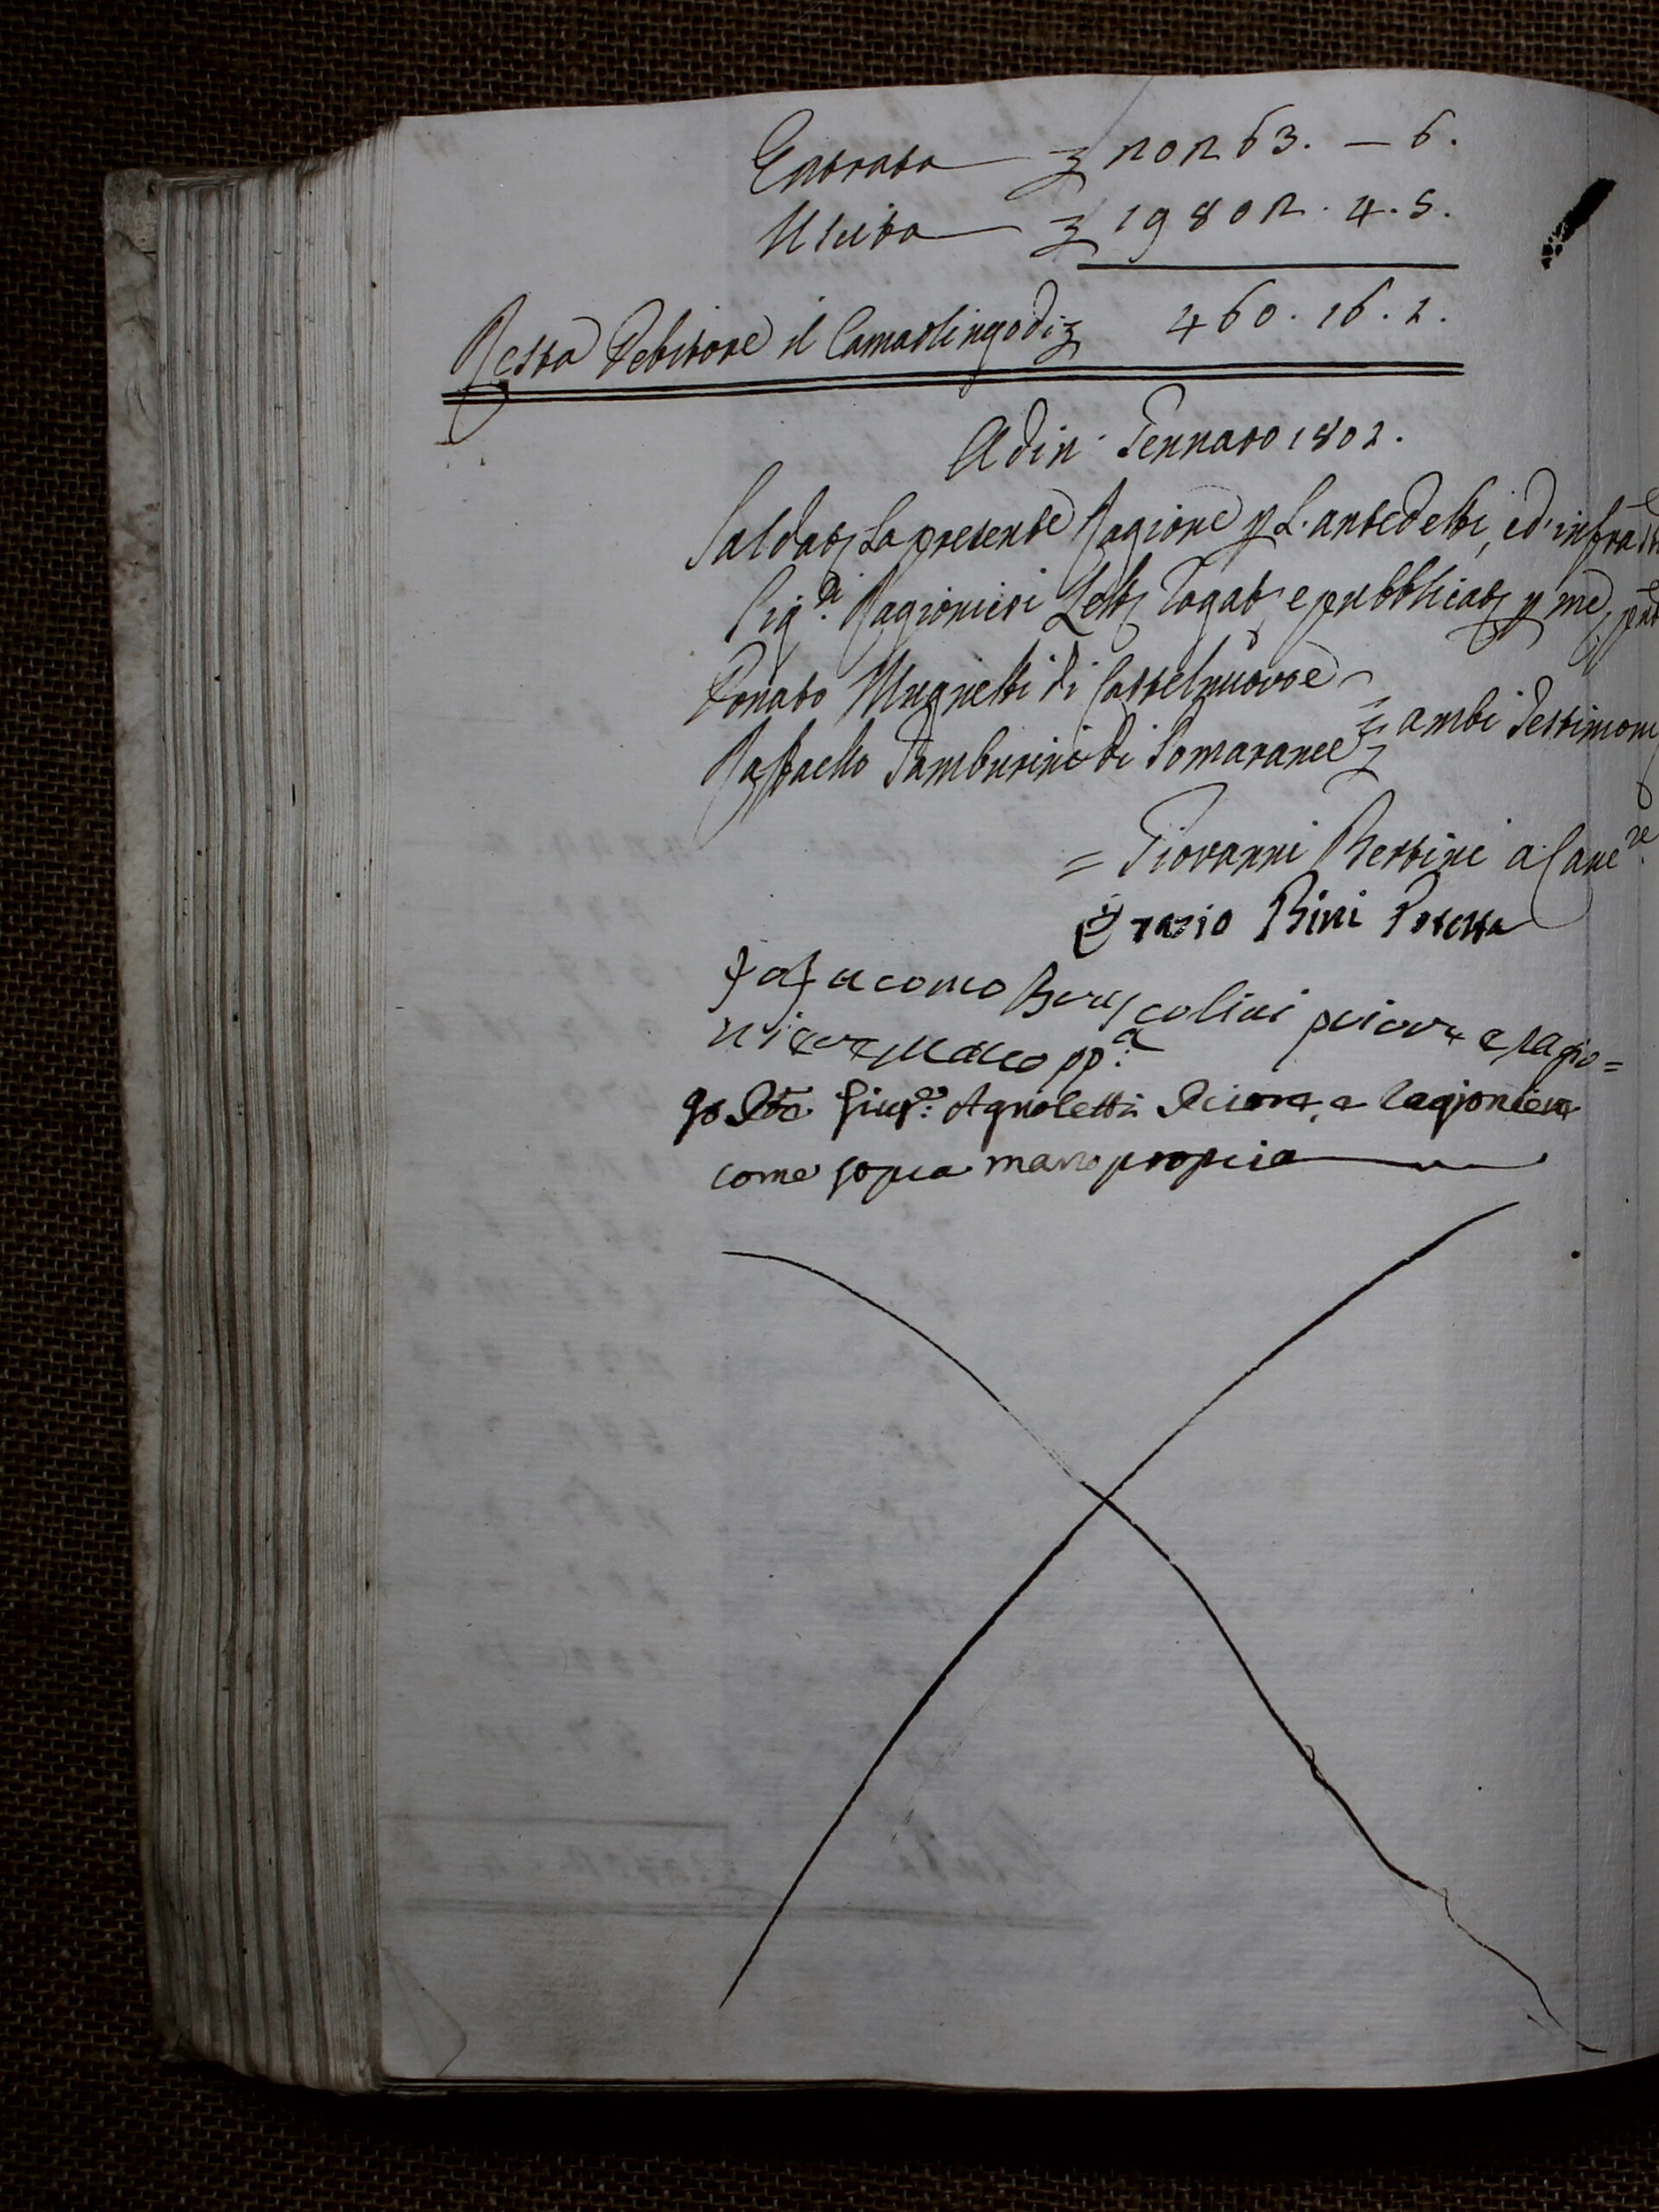 Entrata £ 20263. — 6.
Uscita £ 19802. 4. 5.
Resta Debitore il Camarlingo di £ 460. 16. 1.
Adi 2. Gennaro 1802.
Saldata la presente Ragione p L. antedetti, ed infra
Sig.ri Ragionieri Letta Rogata, e pubblicata p me, pnti
Donato Mugnetti di Castelnuovo e
Raffaello Tamburini di Pomarance ambi Testimoni
= Giovanni Bertini a Canc.re
Orazio Bini Potestà
Io Jacomo Bruscolini priore e ragio=
niere mano pp.a
Io Dto. Gius.e Agnoletti Priore, e Ragioniere
come sopra mano propria